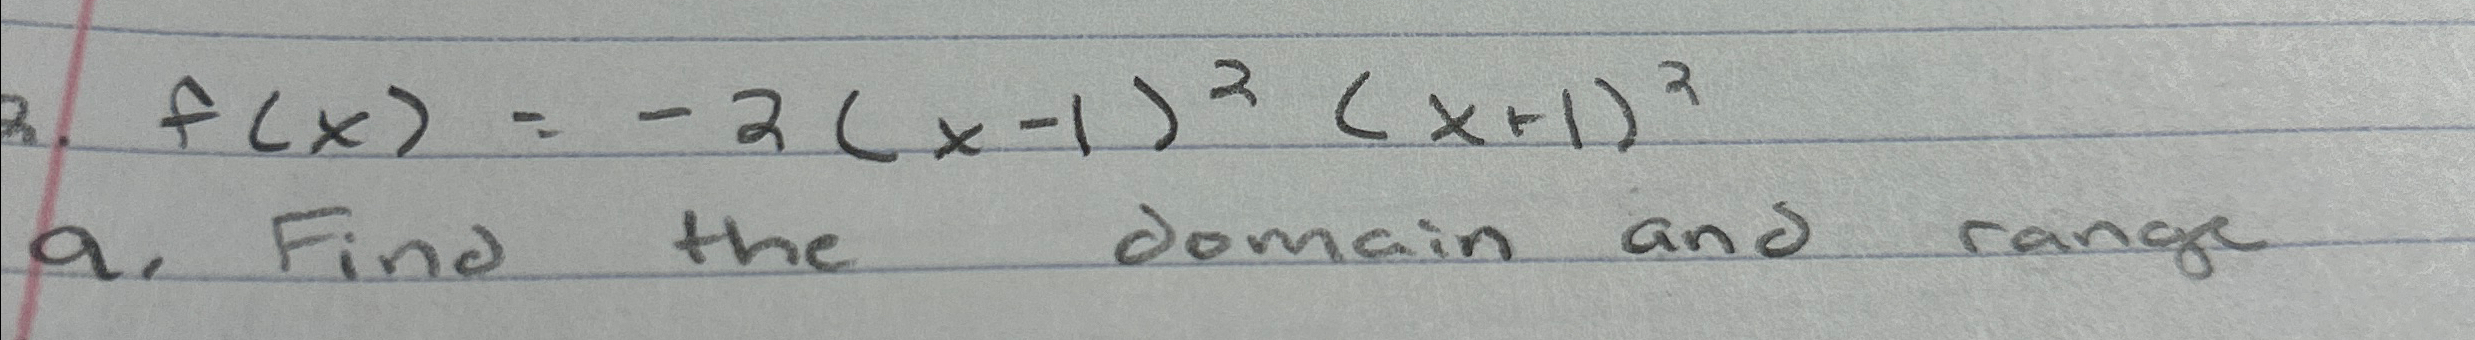 2. f(x) = -2(x-1)² (x+1)²
a. Find the domain and range